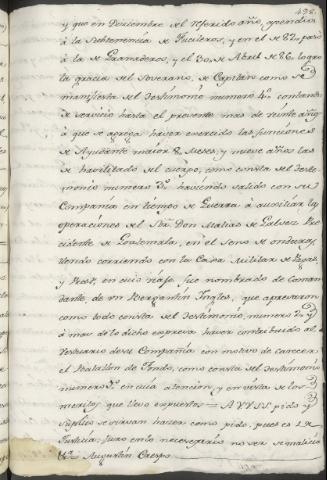 498.
y que en Diziembre del referido año, ascendio
à la Subtenencia de Fucileros, y en el de 82,, pasó
à la de Granaderos, y el 30,, de Abril de 86,, logro
la gracia del Soverano, de Capitan como se
manifiesta del Testimonio numero 4º contando
de servicio hasta el presente mas de veinte años
à que se agrega haver exercido las funciones
de Ayudante maior 8,, meses, y nueve años las
de havilitado del cuerpo, como consta del Teste-
monio numero 5º haviendo salido con su
Compañia en tiempo de Guerra à auxiliar las
operaciones del Sôr Don Matias de Galvez Pre-
cidente de Goatemala, en el Seno de onduras,
vendo corriendo con la Caxa Militar de
y en cuio viaje fue nombrado de Coman-
dante, de un Bergantin Ingles, que apresaron
como todo consta del Testimonio, numero
à mas de lo dicho expresa haver contribuido al
Vestuario de su Compañia con motivo de carecer
el Batallon de Fondo, como consta del Testimonio
numero en cuia atencion, y en vista de los
meritos, que llevo expuestos = A VSS. pido y
suplico se sirvan hacer como pido, pues es de
Justicia; Juro en lo necesario no ser de malicia
Augustin Crespo